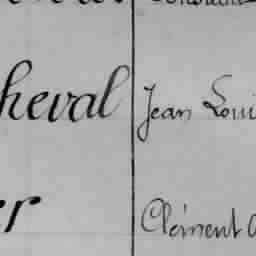 heval Jean Loui
er Clément